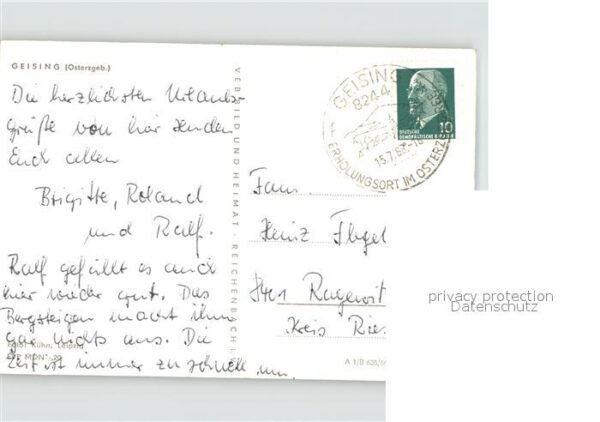 GEISING (Osterzgeb.)
Die herzlichsten Urlaubs-
grüße von hier senden
Euch allen
Brigitte, Roland
und Ralf.
Ralf gefällt es auch
hier wieder gut. Das
Bergsteigen macht ihm
gar nichts aus. Die
Zeit ist immer zu schnell um.
Foto: Kühn, Leipzig
VEB BILD UND HEIMAT · REICHENBACH I. V.
GEISING
8244
15.7.68
ERHOLUNGSORT IM OSTERZ
DEUTSCHE
DEMOKRATISCHE REPUBLIK
10
Fam.
Heinz
Ragewit
Kreis Ries
A 1/B 628/6
privacy protection
Datenschutz